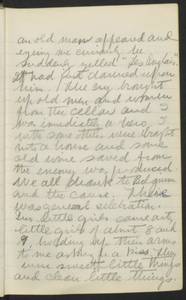 an old man appeared and
eyeing me curiously he
suddenly yelled "Les Anglais."
It had just dawned upon
him. The cry brought
up old men and women
from the cellars and I
was immediately a hero. I
with some others were brought
into a house and some
old wine saved from
the enemy was produced
We all drank to Belgium
and the cause. There
was general celebration.
Two little girls came up
little girls of about 8 and
9, holding by their arms
to me asking a kiss. They
were sweet little things
and clean little things.